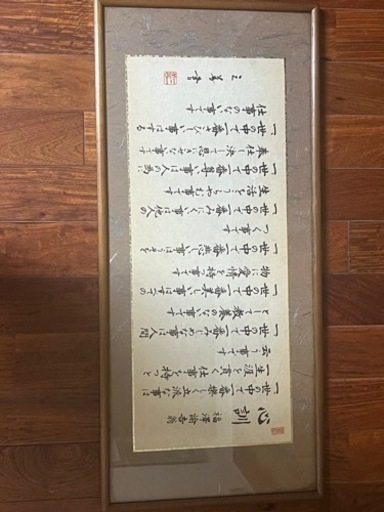 心訓
福澤諭吉翁
一世の中で一番楽しく立派な事は
一生涯を貫く仕事を持つと
云う事です
一世の中で一番みじめな事は人間
として教養のない事です
一世の中で一番美しい事はすべての
物に愛情を持つ事です
一世の中で一番悲しい事はうそを
つく事です
一世の中で一番みにくい事は他人の
生活をうらやむ事です
一世の中で一番尊い事は人の為に
奉仕し決して恩にきせない事です
一世の中で一番さみしい事はする
仕事のない事です